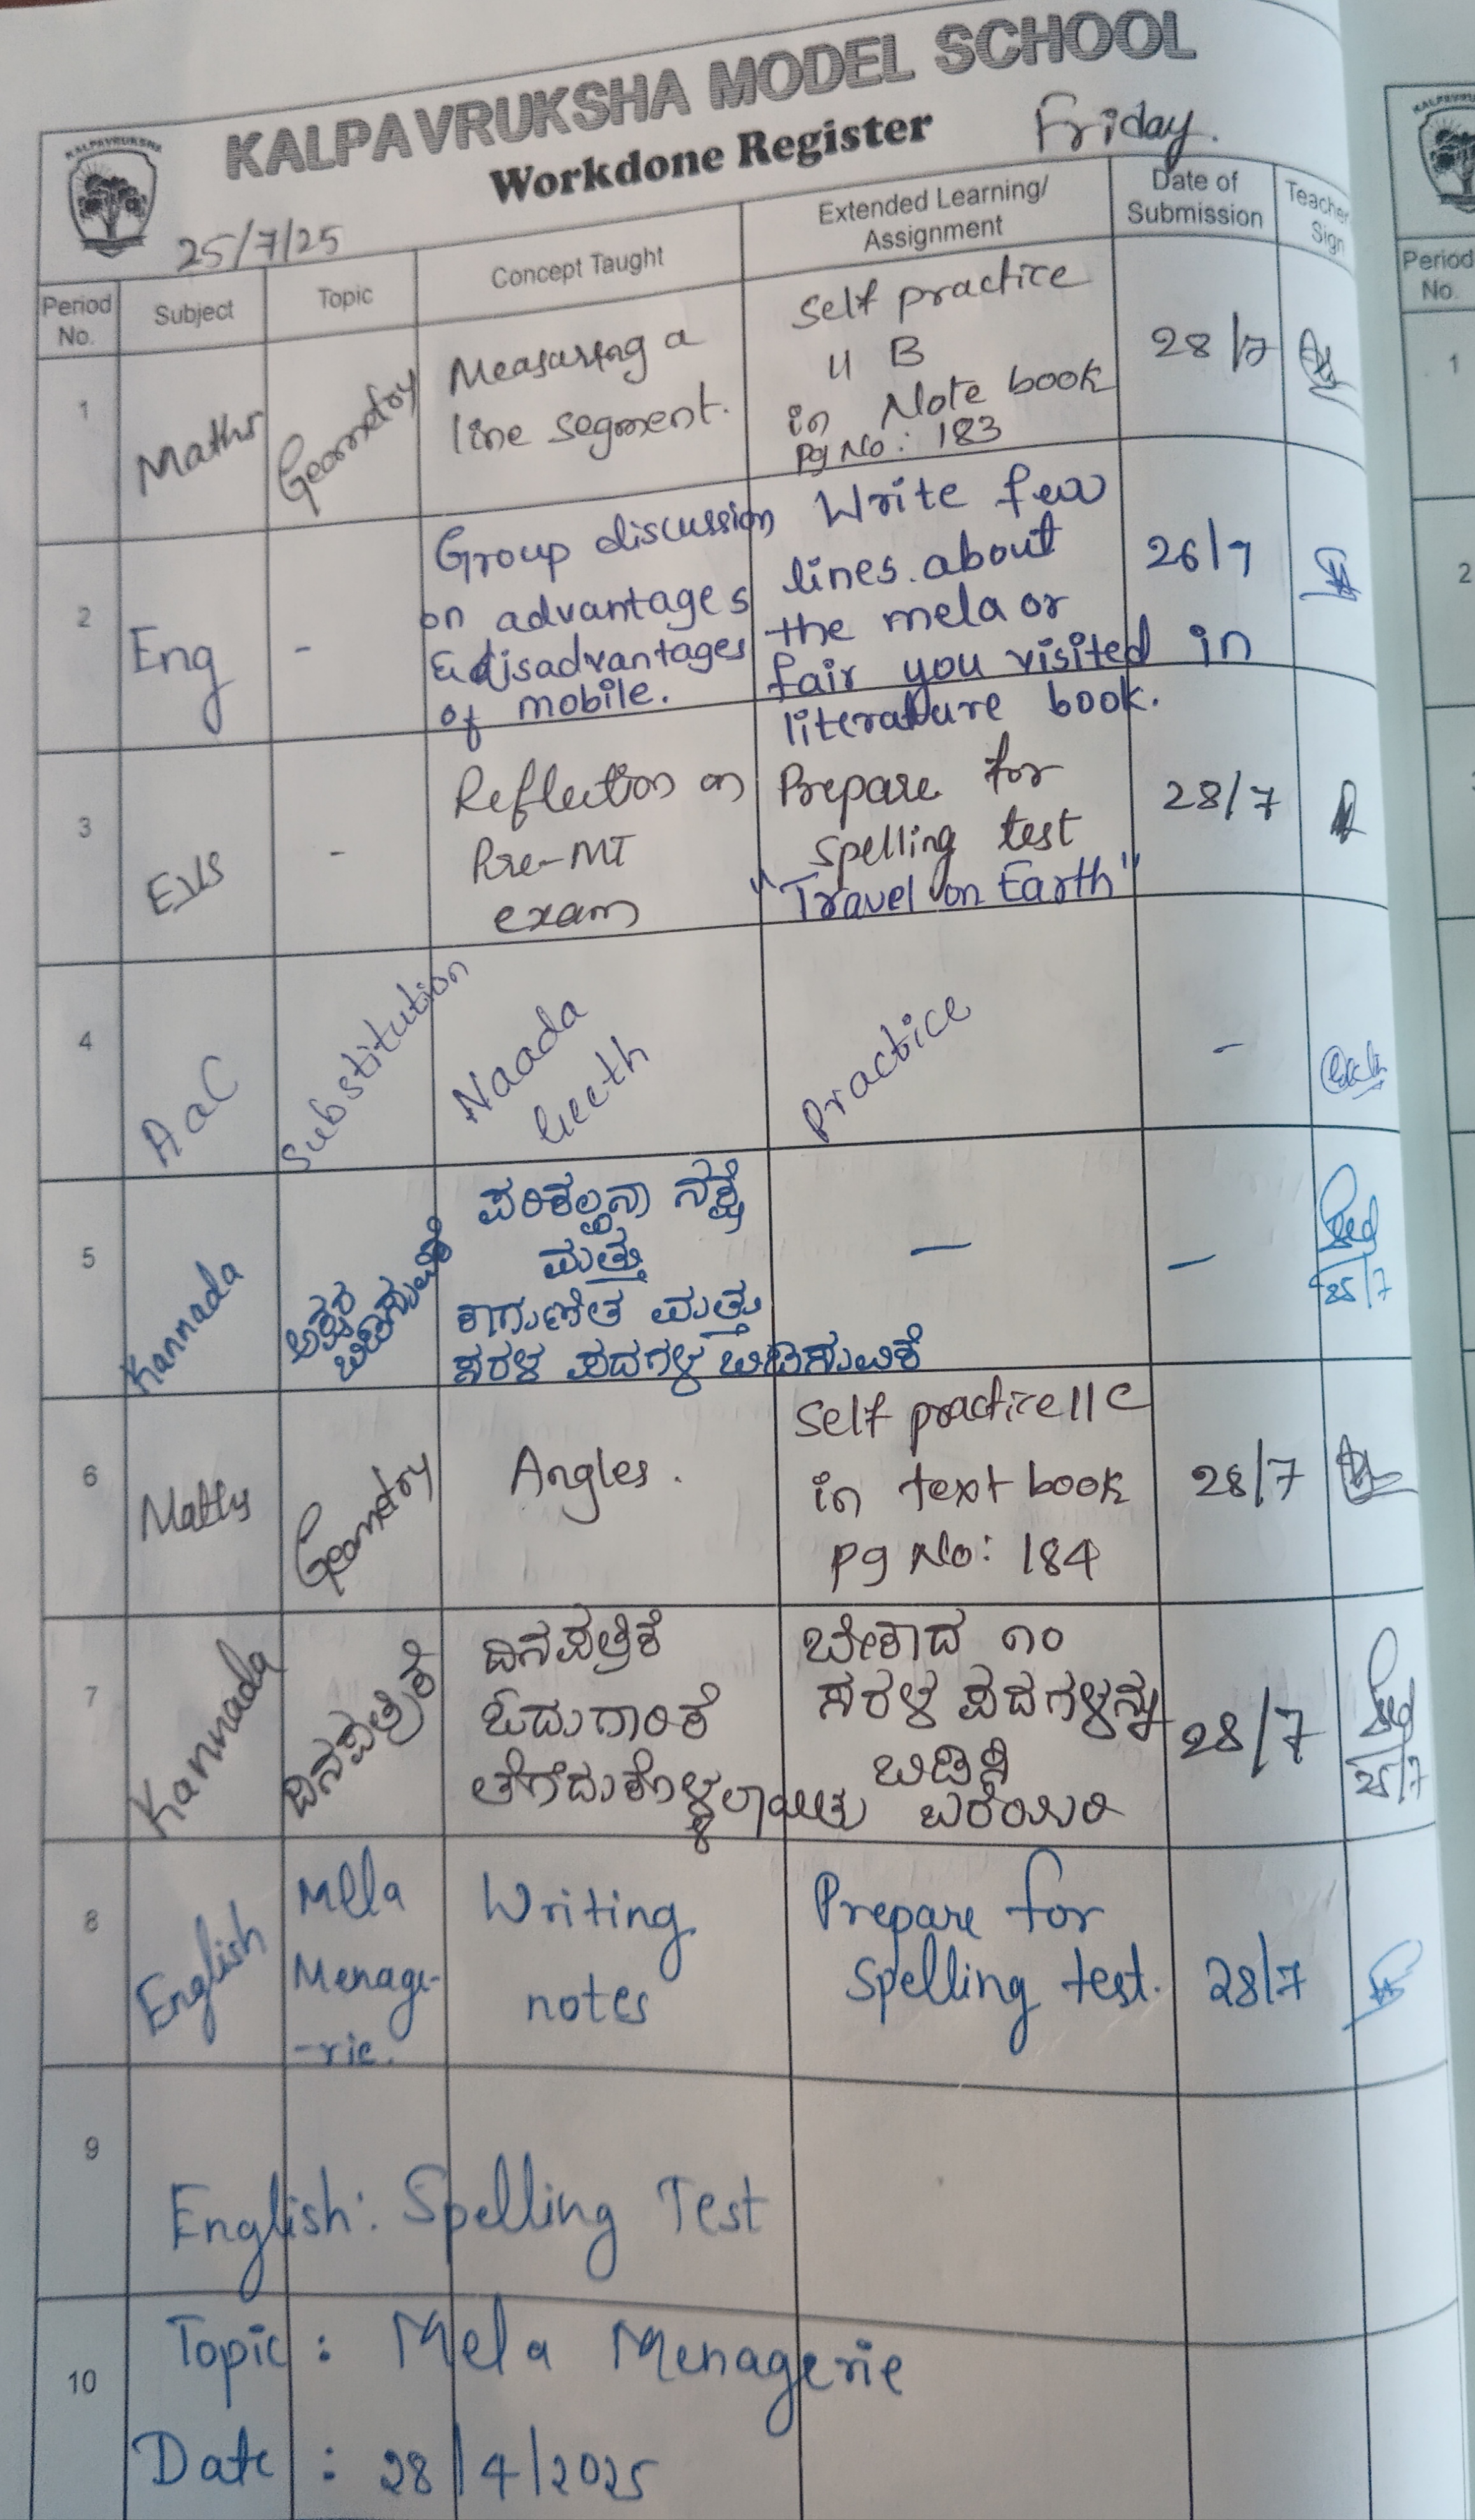 KALPAVRUKSHA MODEL SCHOOL
Workdone Register
Friday.
KALPAVRUKSHA
25/7/25
Period No.
Subject
Topic
Concept Taught
Extended Learning/
Assignment
Date of
Submission
Teacher
Sign
1
Maths
Geometry
Measuring a
line segment.
Self practice
11 B
in Note book
Pg No: 183
28/7
2
Eng
-
Group discussion
on advantages
& disadvantages
of mobile.
Write few
lines about
the mela or
fair you visited in
literature book.
26/7
3
EVS
-
Reflection on
Pre-MT
exam
Prepare for
spelling test
"Travel on Earth"
28/7
4
AaC
Substitution
Naada
Geeth
Practice
-
5
Kannada
ಅಕ್ಷರ
ಬಿಡಿಸುವಿಕೆ
ಪರಿಕಲ್ಪನಾ ನಕ್ಷೆ
ಮತ್ತು
ಕಾಗುಣಿತ ಮತ್ತು
ಸರಳ ಪದಗಳ ಬಿಡಿಸುವಿಕೆ
-
-
25/7
6
Maths
Geometry
Angles.
Self practice 11 C
in text book
Pg No: 184
28/7
7
Kannada
ದಿನಪತ್ರಿಕೆ
ದಿನಪತ್ರಿಕೆ
ಓದುಗಾರಿಕೆ
ತೆಗೆದುಕೊಳ್ಳಲಾಯಿತು
ಬೇಕಾದ ೧೦
ಸರಳ ಪದಗಳನ್ನು
ಬಿಡಿಸಿ
ಬರೆಯಿರಿ
28/7
25/7
8
English
Mela
Menage-
-rie.
Writing
notes
Prepare for
Spelling test.
28/7
9
English: Spelling Test
10
Topic : Mela Menagerie
Date : 28/4/2025
KALPAVRUKSHA
Period
No.
1
2